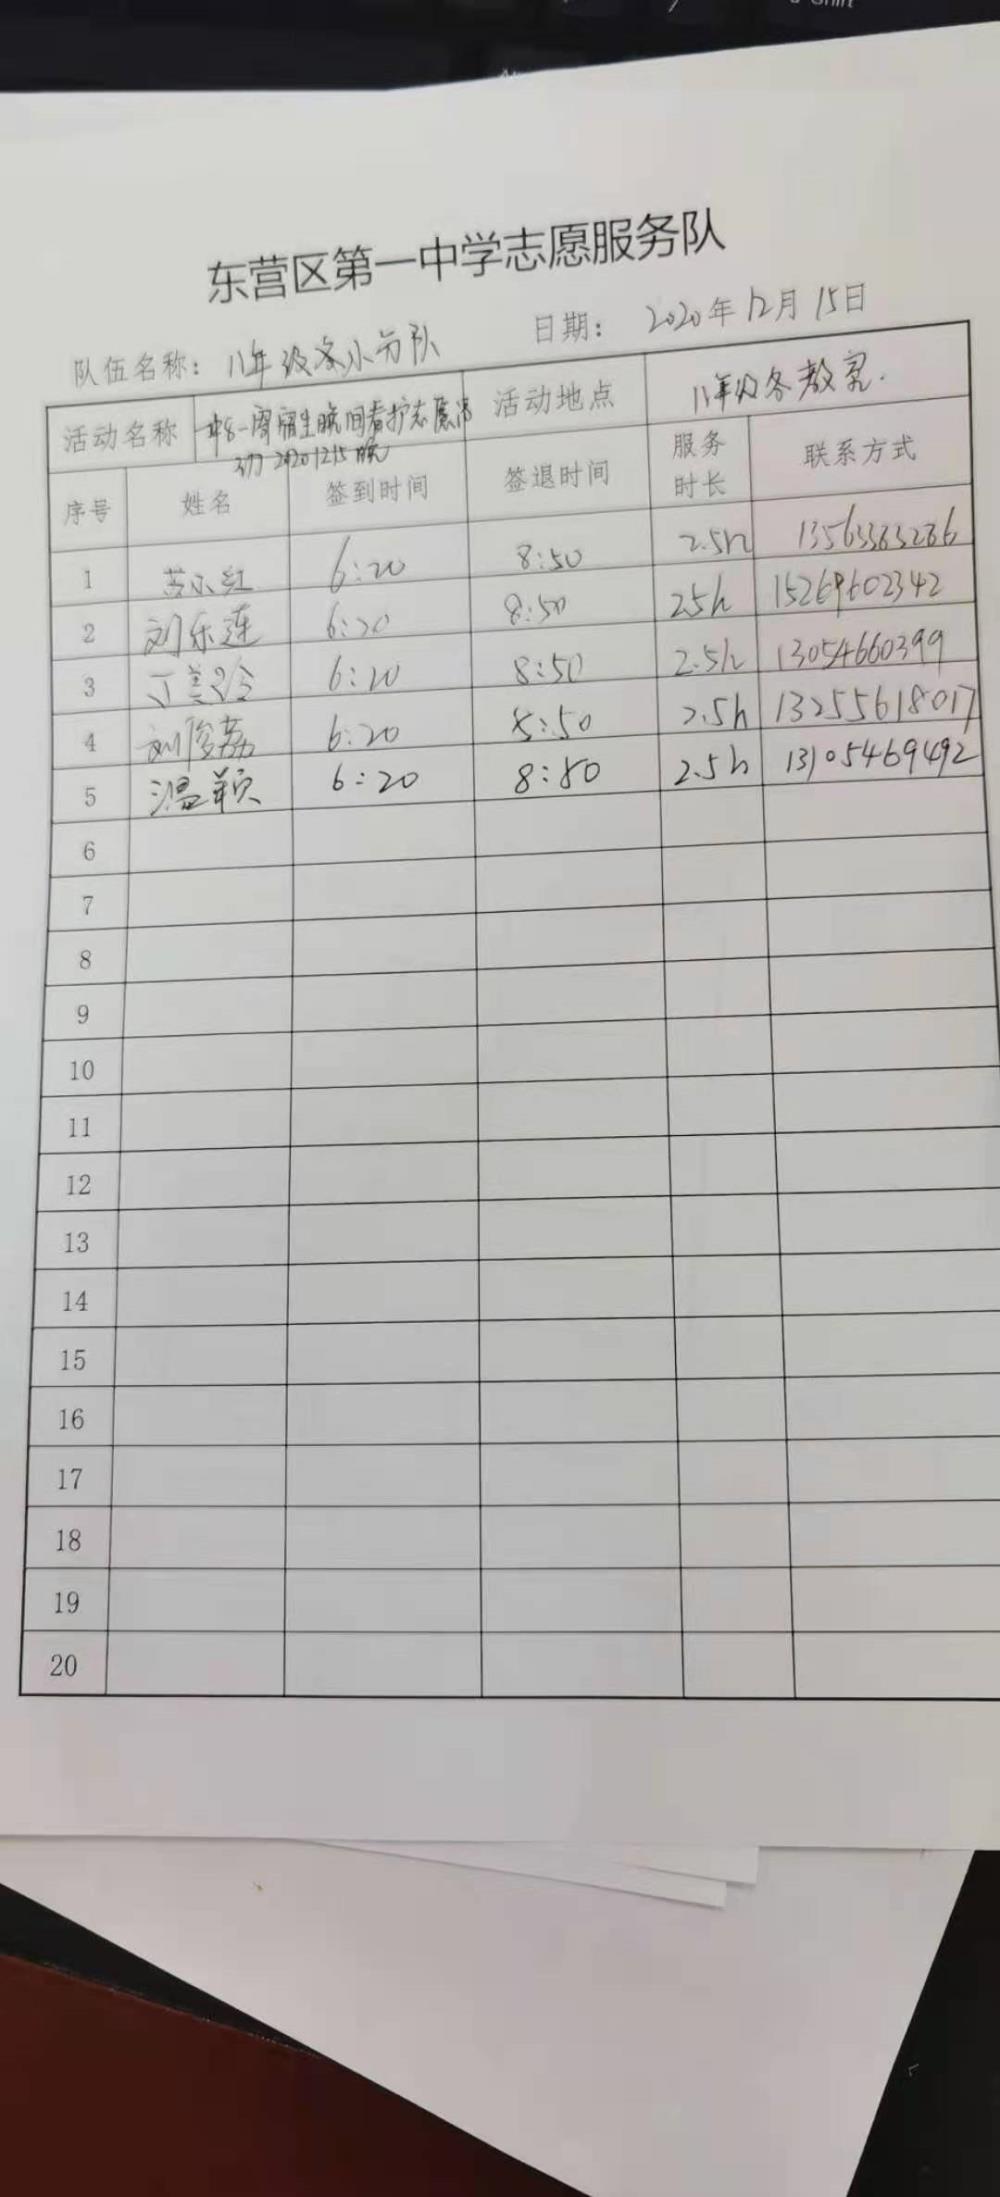 Shift
东营区第一中学志愿服务队
队伍名称: 八年级冬小分队 日期: 2020年12月15日
活动名称 一中8一周宿生晚间看护志愿活动 20201215晚 活动地点 八年级各教室.
序号 姓名 签到时间 签退时间 服务时长 联系方式
1 苏小红 6:20 8:50 2.5h 13563363286
2 刘乐莲 6:20 8:50 2.5h 15269602342
3 丁美玲 6:20 8:50 2.5h 13054660399
4 刘俊荔 6:20 8:50 2.5h 13255618017
5 温颖 6:20 8:50 2.5h 13105469492
6
7
8
9
10
11
12
13
14
15
16
17
18
19
20